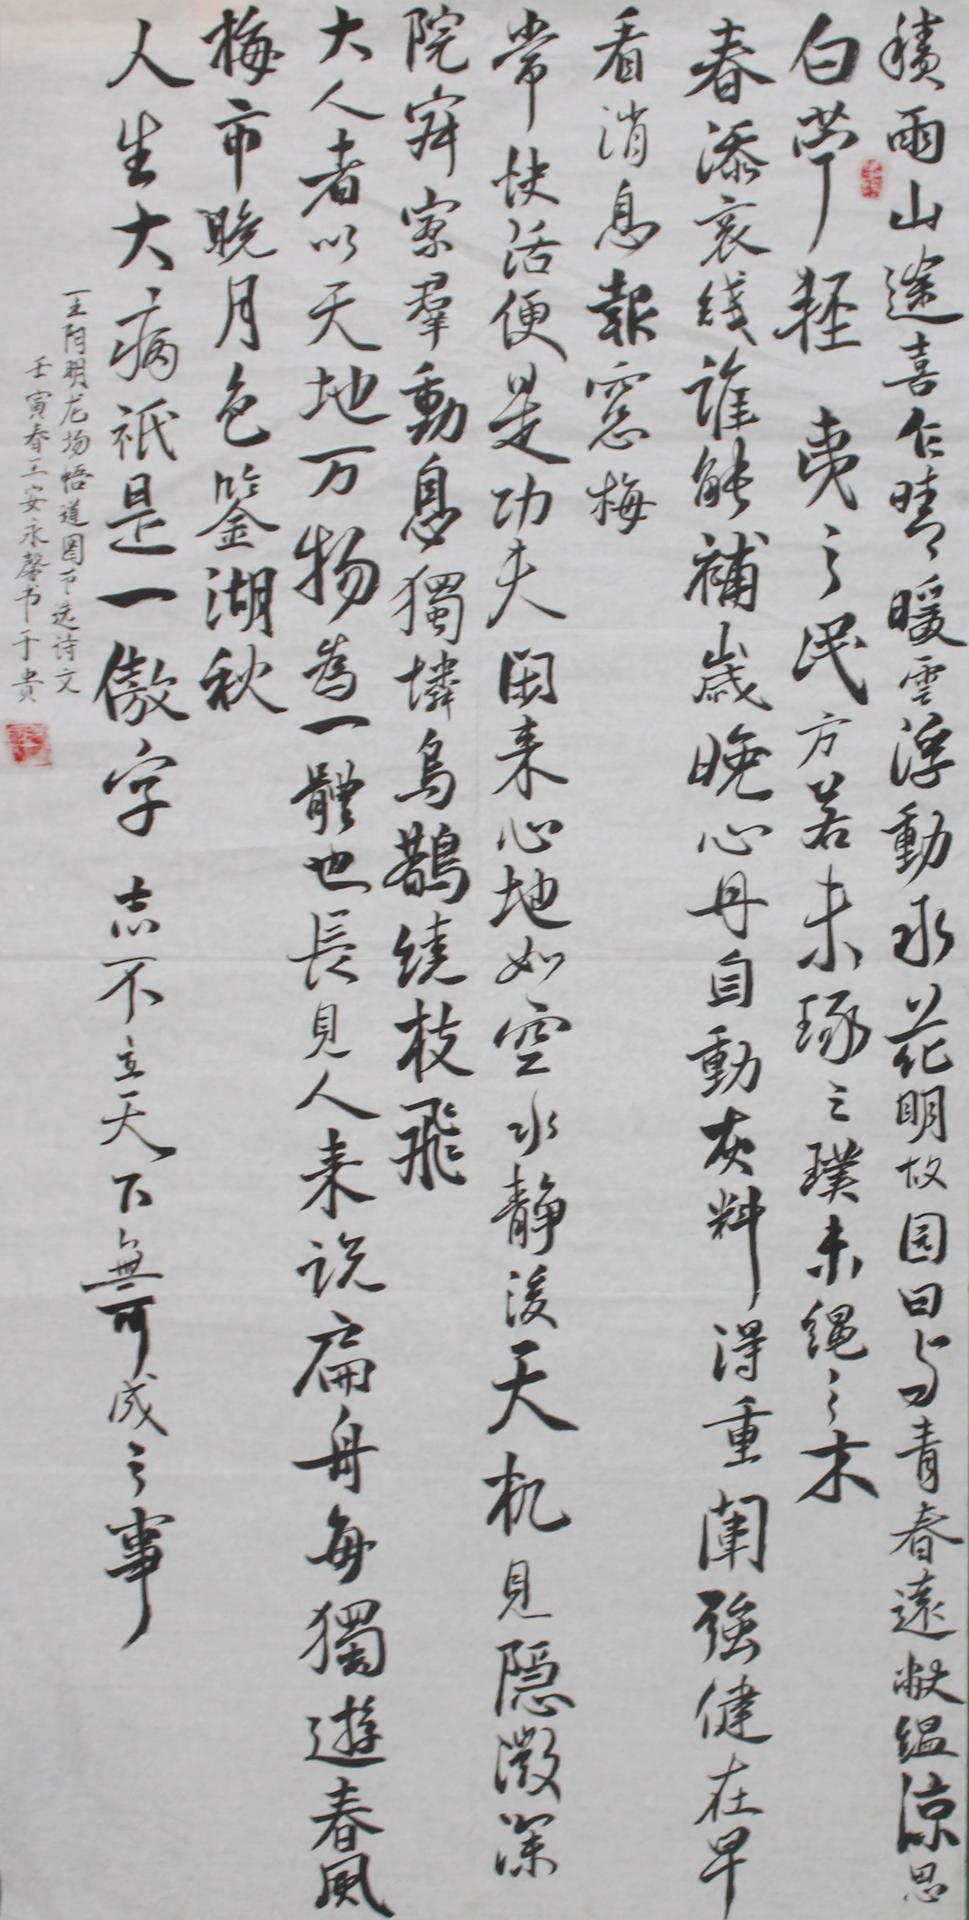 積雨山途喜乍晴暖雲浮動水花明故园日与青春遠敝緼凉思
白苧輕 夷之民方若未琢之璞未绳之木
春添衮线谁能補歲晚心丹自動灰料得重闈強健在早
看消息報窓梅
常快活便是功夫閑来心地如空水静後天机見隠微深
院寂寥羣動息獨憐烏鵲繞枝飛
大人者以天地万物為一體也長見人来说扁舟每獨遊春風
梅市晚月色鑒湖秋
人生大病祇是一傲字 志不立天下無可成之事
王阳明龙场悟道圈下选诗文
壬寅春王安永馨书于贵